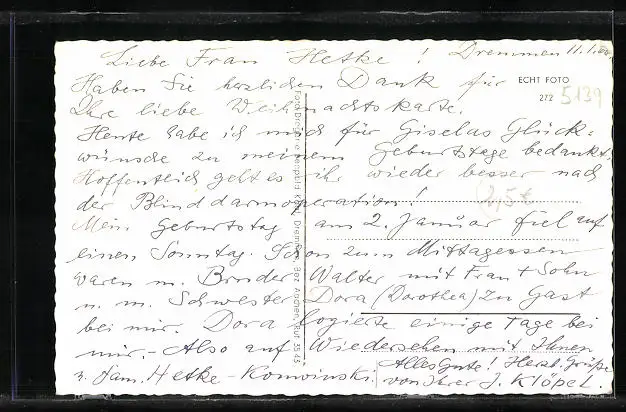 Liebe Frau Hetke! Dremmen 11.1.
Haben Sie herzlichen Dank für
Ihre liebe Weihnachtskarte.
Heute habe ich mich für Giselas Glück=
wünsche zu meinem Geburtstage bedankt.
Hoffentlich geht es ihr wieder besser nach
der Blinddarmoperation!
Mein Geburtstag am 2. Januar fiel auf
einen Sonntag. Schon zum Mittagessen
waren m. Bruder Walter mit Frau + Sohn
u. m. Schwester Dora (Dorothea) zu Gast
bei mir. Dora logierte einige Tage bei
mir. - Also auf Wiedersehen mit Ihnen
u. Fam. Hetke - Komoinski.
Alles Gute! Herzl. Grüße
von Ihrer J. Klöpel.
ECHT FOTO
272 5139
2,5€